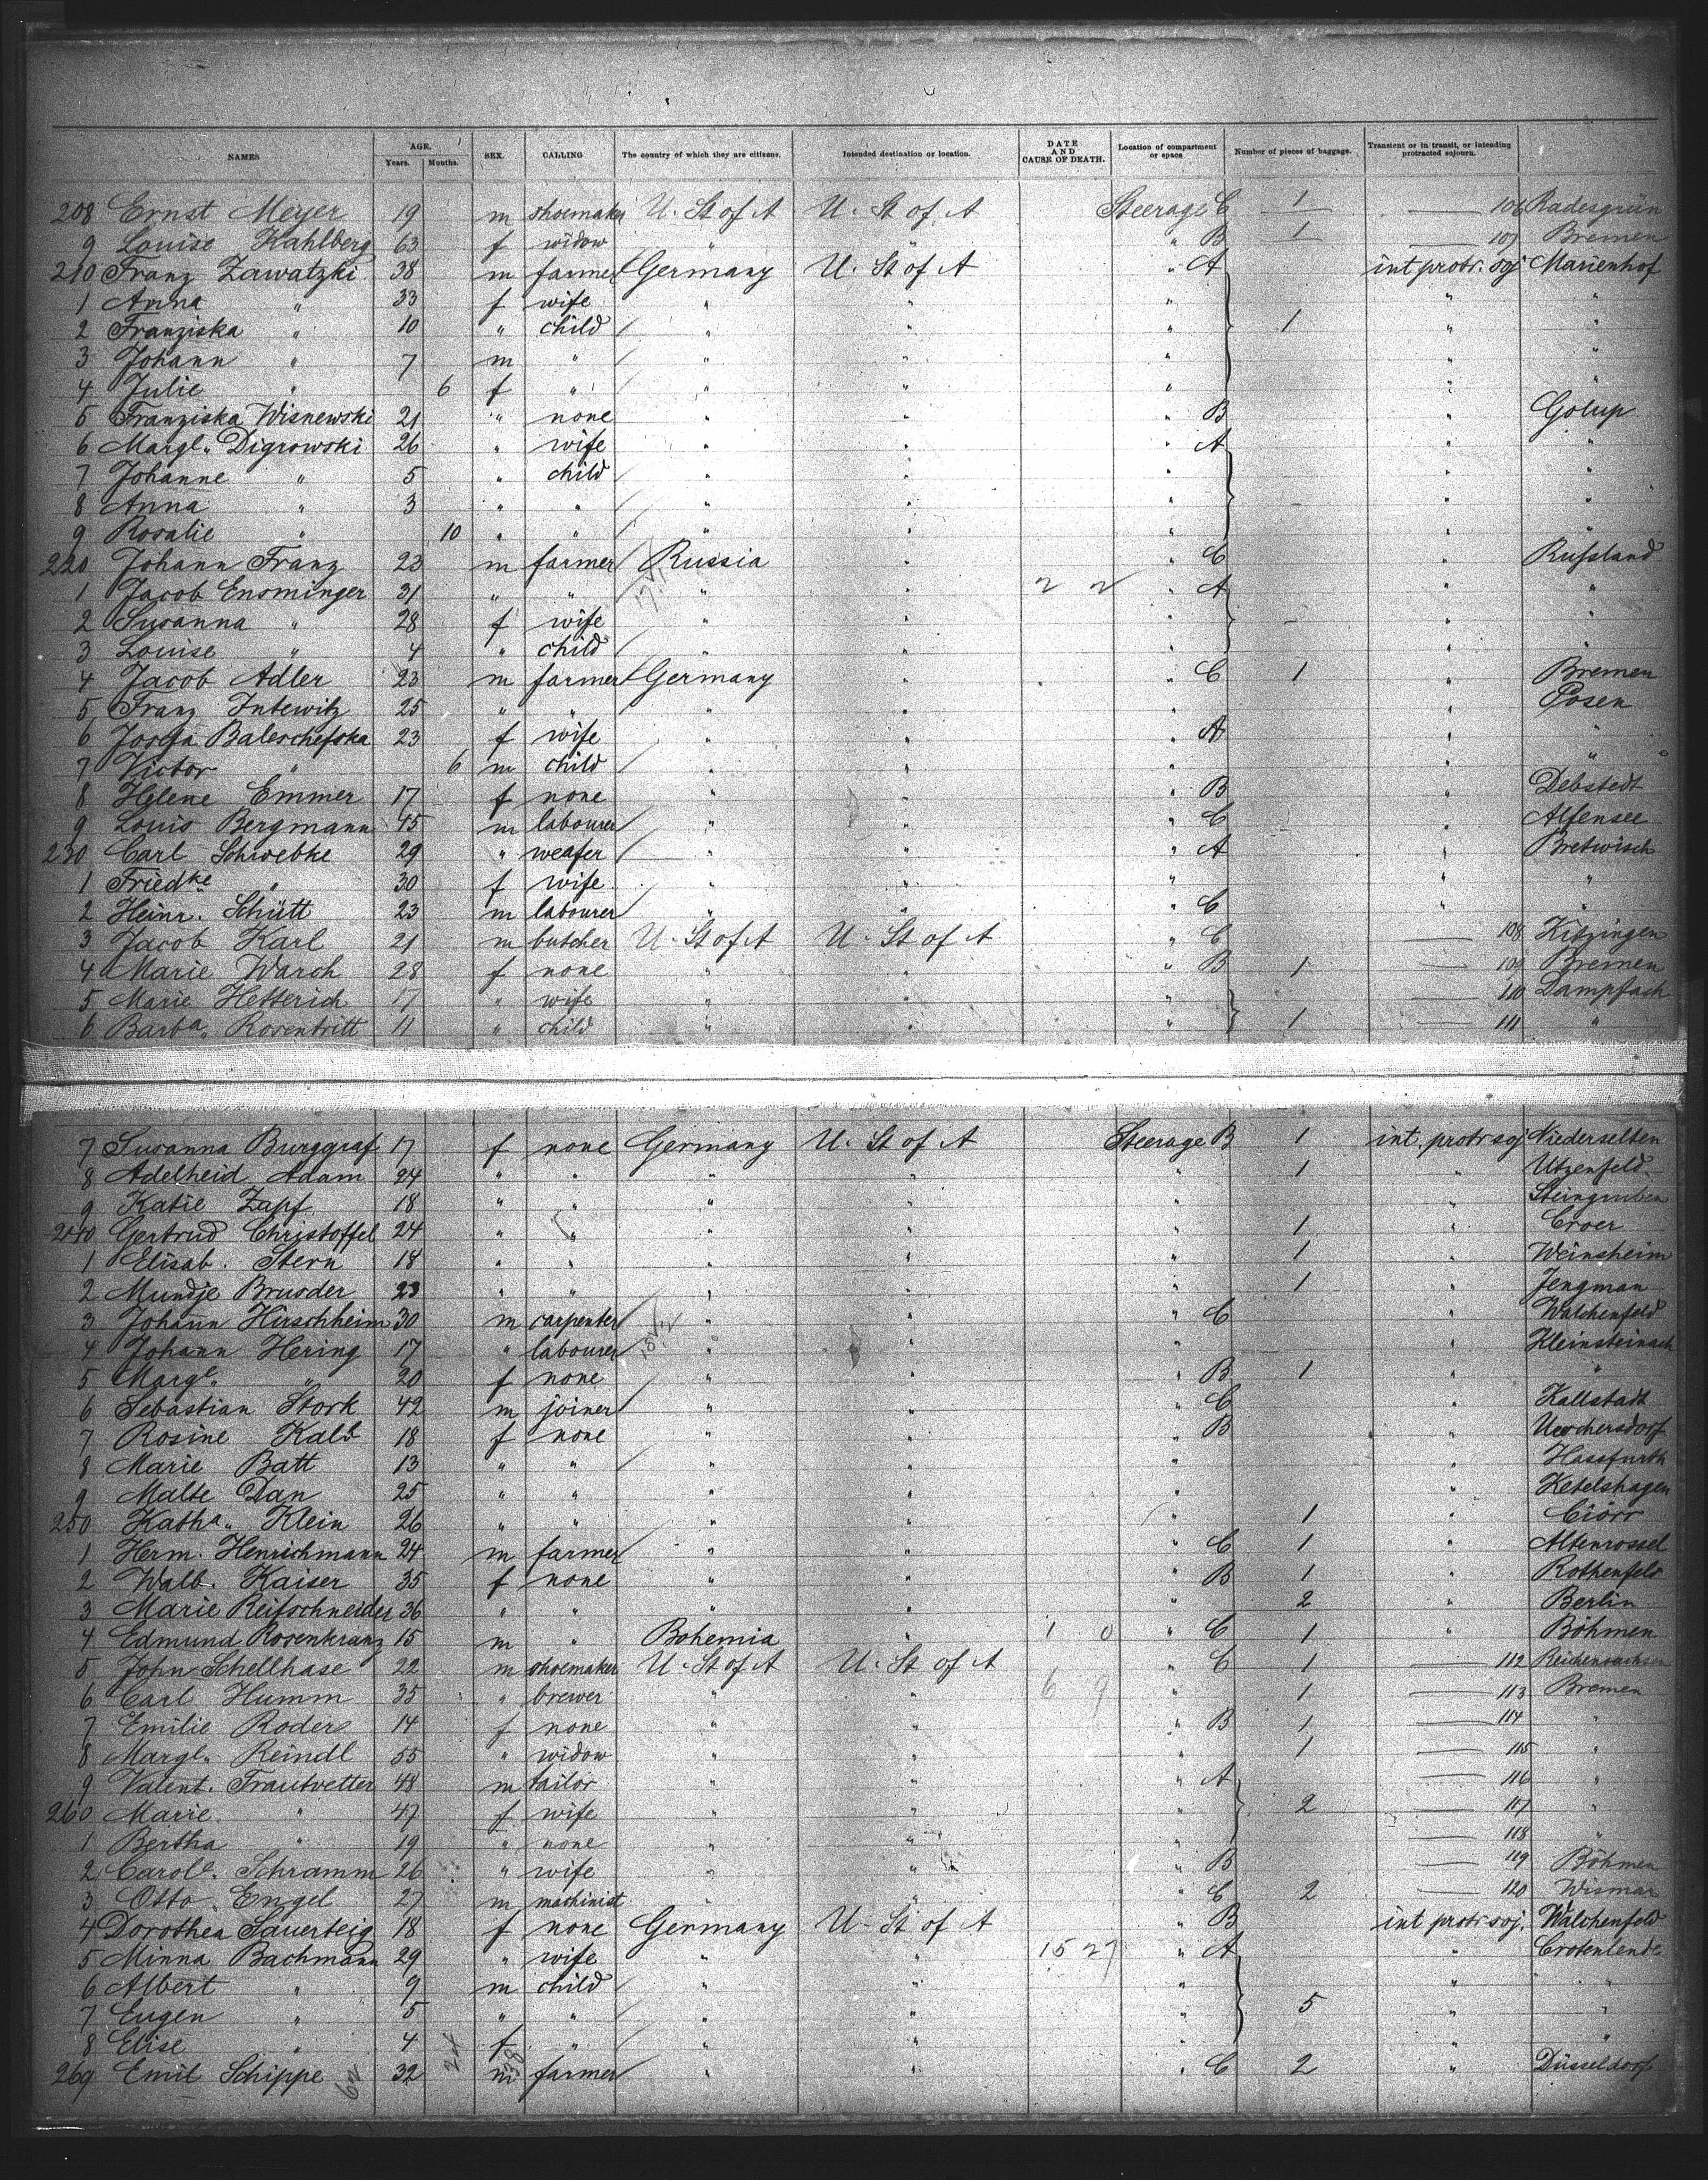 NAMES AGE. Years. Months. SEX. CALLING The country of which they are citizens. Intended destination or location. DATE AND CAUSE OF DEATH. Location of compartment or space Number of pieces of baggage. Transient or in transit, or intending protracted sojourn.
208 Ernst Meyer 19 m shoemaker U. St of A U. St of A Steerage C 1 — 106 Radesgrün
9 Louise Kahlberg 63 f widow " " " B 1 — 107 Bremen
210 Franz Zawatzki 38 m farmer Germany U. St of A " A int protr. soj Marienhof
1 Anna " 33 f wife " " " " "
2 Franziska " 10 " child " " " 1 " "
3 Johann " 7 m " " " " " "
4 Julie " 6 f " " " " " "
5 Franziska Wisnewski 21 " none " " " B " Golup
6 Margl. Digrowski 26 " wife " " " A " "
7 Johanne " 5 " child " " " " "
8 Anna " 3 " " " " " - " "
9 Rosalie " 10 " " " " " " "
220 Johann Franz 23 m farmer Russia " " C " Rußland
1 Jacob Ensminger 31 " " " " 2 2 " A " "
2 Susanna " 28 f wife " " " - " "
3 Louise " 4 " child " " " " "
4 Jacob Adler 23 m farmer Germany " " C 1 " Bremen
5 Franz Intewitz 25 " " " " " " Posen
6 Josefa Baleschefska 23 f wife " " " A " "
7 Victor " 6 m child " " " " "
8 Helene Emmer 17 f none " " " B " Debstedt
9 Louis Bergmann 45 m labourer " " " C " Alfensee
230 Carl Schwebke 29 " weafer " " " A " Bretwisch
1 Friedke " 30 f wife " " " " "
2 Heinr. Schütt 23 m labourer " " " C " "
3 Jacob Karl 21 m butcher U. St of A U. St of A " C — 108 Kitzingen
4 Marie Warch 28 f none " " " B 1 — 109 Bremen
5 Marie Hetterich 17 " wife " " " — 110 Dampfach
6 Barba. Rosentritt 11 " child " " " 1 — 111 "
7 Susanna Burggraf 17 f none Germany U. St of A Steerage B 1 int. protr soj Niederselten
8 Adelheid Adam 24 " " " " " 1 " Utzenfeld
9 Katie Zapf 18 " " " " " " Steingruben
240 Gertrud Christoffel 24 " " " " " 1 " Croer
1 Elisab. Stern 18 " " " " " 1 " Weinsheim
2 Mundje Brusder 23 " " " " " 1 " Jengman
3 Johann Hirschheim 30 m carpenter " " " C " Walchenfeld
4 Johann Hering 17 " labourer " " " " Kleinsteinach
5 Margl. " 20 f none " " " B 1 " "
6 Sebastian Stork 42 m joiner " " " C " Kallstadt
7 Rosine Kalb 18 f none " " " B "
8 Marie Batt 13 " " " " " " Hassfurth
9 Malte Dan 25 " " " " " " Ketelshagen
250 Katha. Klein 26 " " " " " 1 " Ciörr
1 Herm. Henrichmann 24 m farmer " " " C 1 " Altenrossel
2 Walb. Kaiser 35 f none " " " B 1 " Rothenfels
3 Marie Reifschneider 36 " " " " " 2 " Berlin
4 Edmund Rosenkranz 15 m " Bohemia " 1 0 " C 1 " Böhmen
5 John Schellhase 22 m shoemaker U. St of A U. St of A " C 1 — 112 Reichensachsen
6 Carl Humm 35 " brewer " " 6 9 " 1 — 113 Bremen
7 Emilie Roders 14 f none " " " B 1 — 114 "
8 Margl. Reindl 55 " widow " " " 1 — 115 "
9 Valent. Trautvetter 48 m tailor " " " A — 116 "
260 Marie " 47 f wife " " " 2 — 117 "
1 Bertha " 19 " none " " " — 118 "
2 Carole. Schramm 26 " wife " " " B — 119 Böhmen
3 Otto Engel 27 m machinist " " " C 2 — 120 Wismar
4 Dorothea Sauerteig 18 f none Germany U. St of A " B int protr soj. Walchenfeld
5 Minna Bachmann 29 " wife " " 15 27 " A " Crotenlende
6 Albert " 9 m child " " " " "
7 Eugen " 5 " " " " " 5 " "
8 Elise " 4 f " " " " " "
269 Emil Schippe 32 m farmer " " " C 2 " Düsseldorf
62 24 38